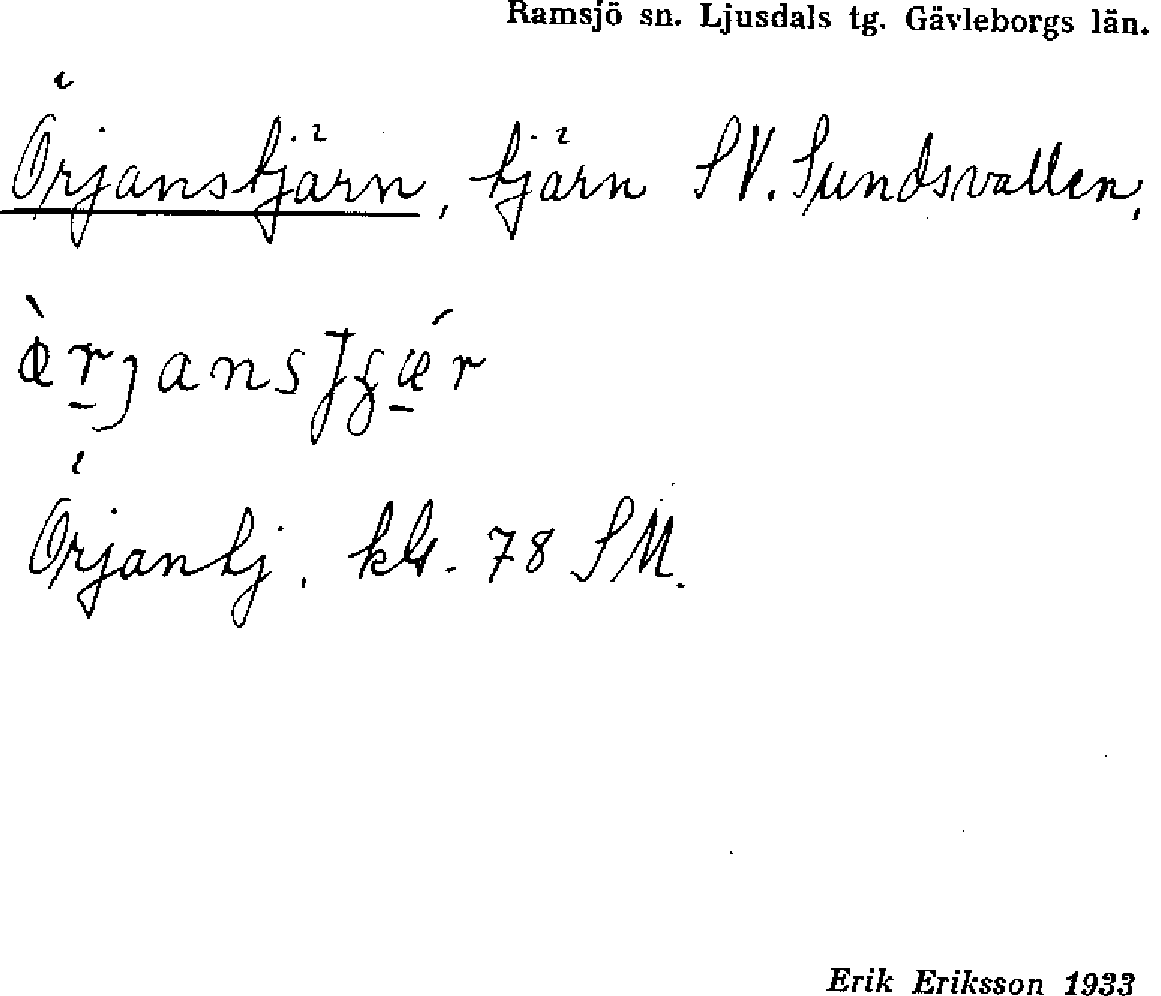 Ramsjö sn. Ljusdals tg. Gävleborgs län.
Örjanstjärn, tjärn SV. Sundsvallen,
Örjantj. kbl. 78 SM.
Erik Eriksson 1933